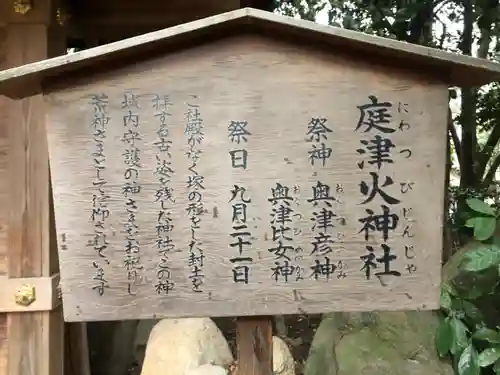 庭津火神社
にわつひじんじゃ
祭神 奥津彦神
おくつひこのかみ
奥津比女神
おくつひめのかみ
祭日 九月二十一日
この社殿がなく塚の形をした封土を
拝する古い姿を残した神社でこの神
域内守護の神さまをお祀りし
荒神さまとして信仰されています